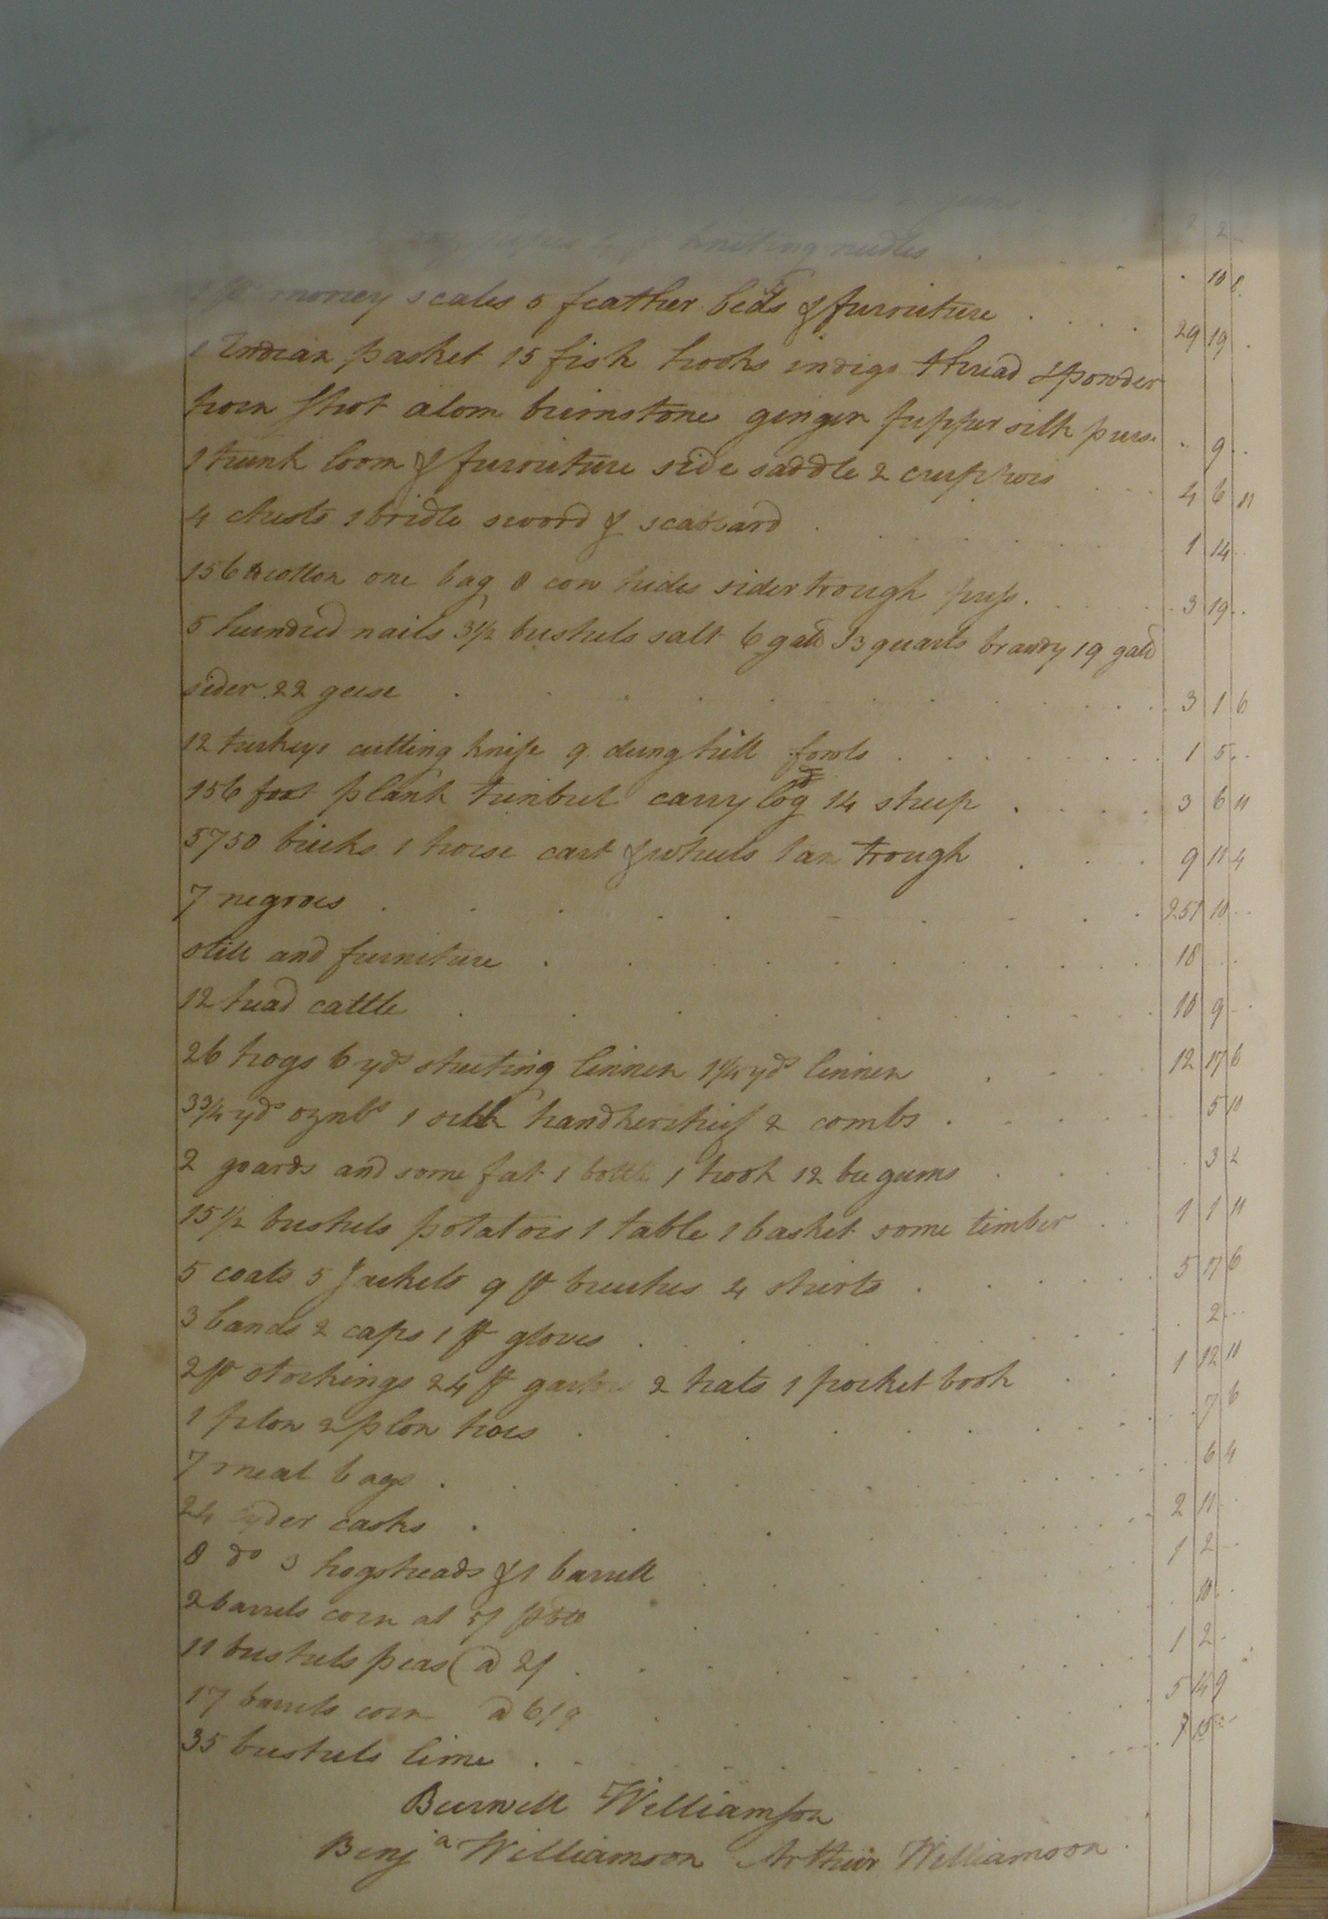 knitting nedles 2 2
money scales 5 feather beds & furniture 10 8
1 Indian pasket 15 fish hooks indigo thread & powder 29 19
horn shot alom brimstone ginger pepper silk purs
1 trunk loom & furniture side saddle 2 cruphors 9
4 chists 1 bridle sword & scabbard 4 6 11
156 lb cotton one bag 8 cow hides sider trough press 1 14
5 hundred nails 3 1/2 bushels salt 6 galls 3 quarts brandy 19 galls 3 19
sider 22 geese 3 1 6
12 turkeys cutting knife 9 dung hill fowls 1 5
156 foot plank tunbul carry log 14 sheep 3 6 11
5750 bricks 1 horse cart & wheels 1 tan trough 9 11 4
7 negroes 251 10
still and furniture 18
12 head cattle 10 9
26 hogs 6 yds sheeting linnen 1 1/4 yds linnen 12 17 6
3 3/4 yds oznbs 1 silk handkerchief 2 combs 5 10
2 goards and some fat 1 bottle 1 hook 12 be gums 3 2
15 1/2 bushels potatoes 1 table 1 basket some timber 1 1 11
5 coats 5 Jackets 9 pr breeches 4 shirts 5 17 6
3 bands 2 caps 1 pr gloves 2
2 pr stockings 24 pr garters 2 hats 1 pocket book 1 12 11
1 plow 2 plow hoes 7 6
7 meal bags 6 4
24 cyder casks 2 11
8 do 3 hogsheads & 1 barrell 1 2
2 barrels corn at 5/ 10
11 bushels peas @ 2/ 1 2
17 barrels corn @ 6/9 5 14 9
35 bushels lime 15
Burwell Williamson
Benja Williamson Arthur Williamson